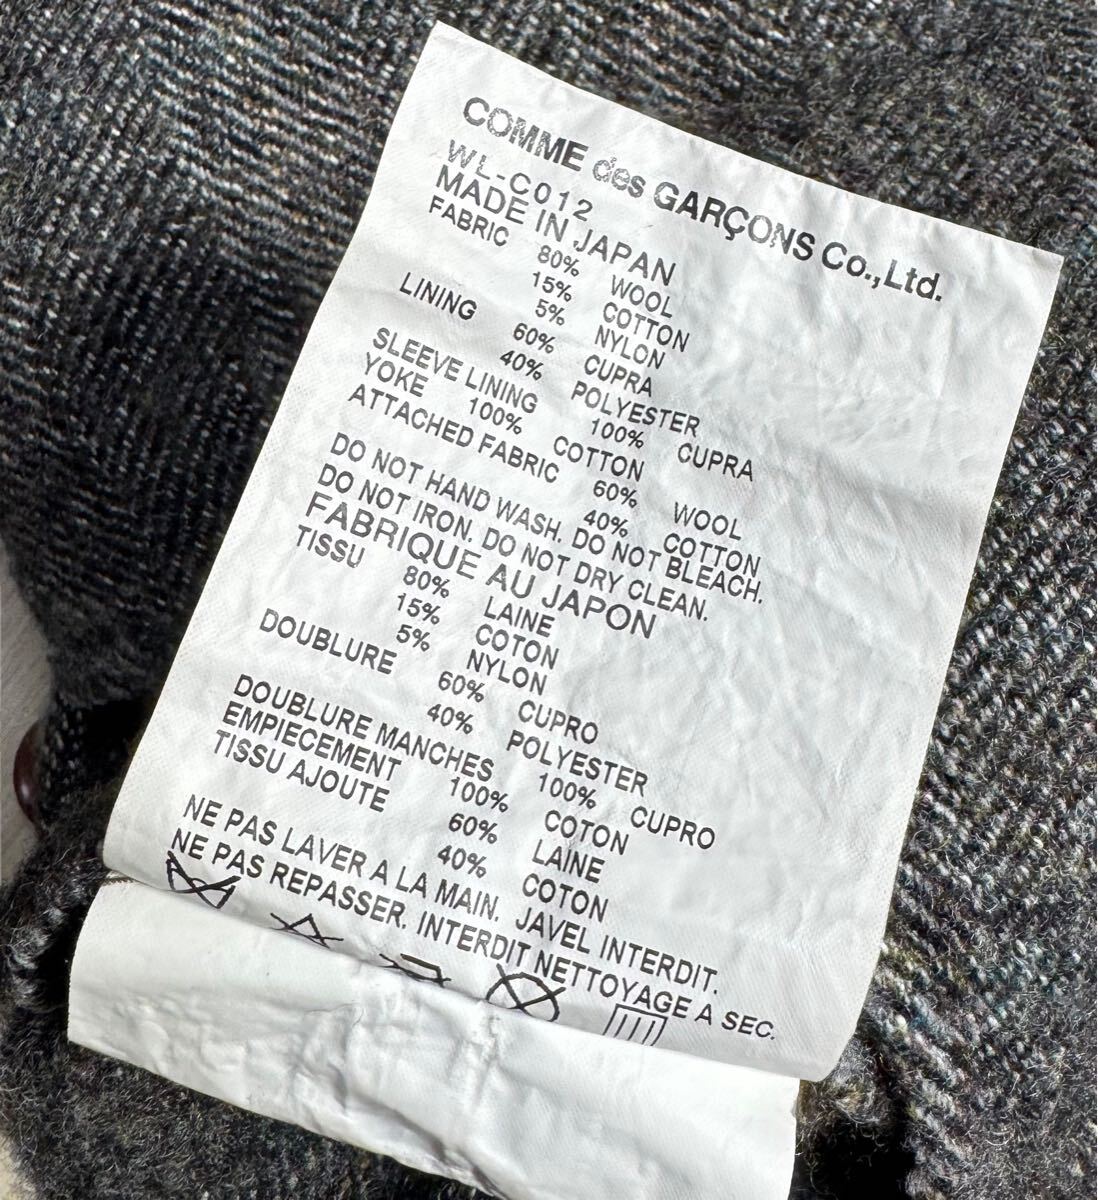 COMME des GARÇONS Co.,Ltd.
WL-C012
MADE IN JAPAN
FABRIC 80% WOOL
15% COTTON
5% NYLON
LINING 60% CUPRA
40% POLYESTER
SLEEVE LINING 100% CUPRA
YOKE 100% COTTON
ATTACHED FABRIC 60% WOOL
40% COTTON
DO NOT HAND WASH. DO NOT BLEACH.
DO NOT IRON. DO NOT DRY CLEAN.
FABRIQUE AU JAPON
TISSU 80% LAINE
15% COTON
5% NYLON
DOUBLURE 60% CUPRO
40% POLYESTER
DOUBLURE MANCHES 100% CUPRO
EMPIECEMENT 100% COTON
TISSU AJOUTE 60% LAINE
40% COTON
NE PAS LAVER A LA MAIN. JAVEL INTERDIT.
NE PAS REPASSER. INTERDIT NETTOYAGE A SEC.